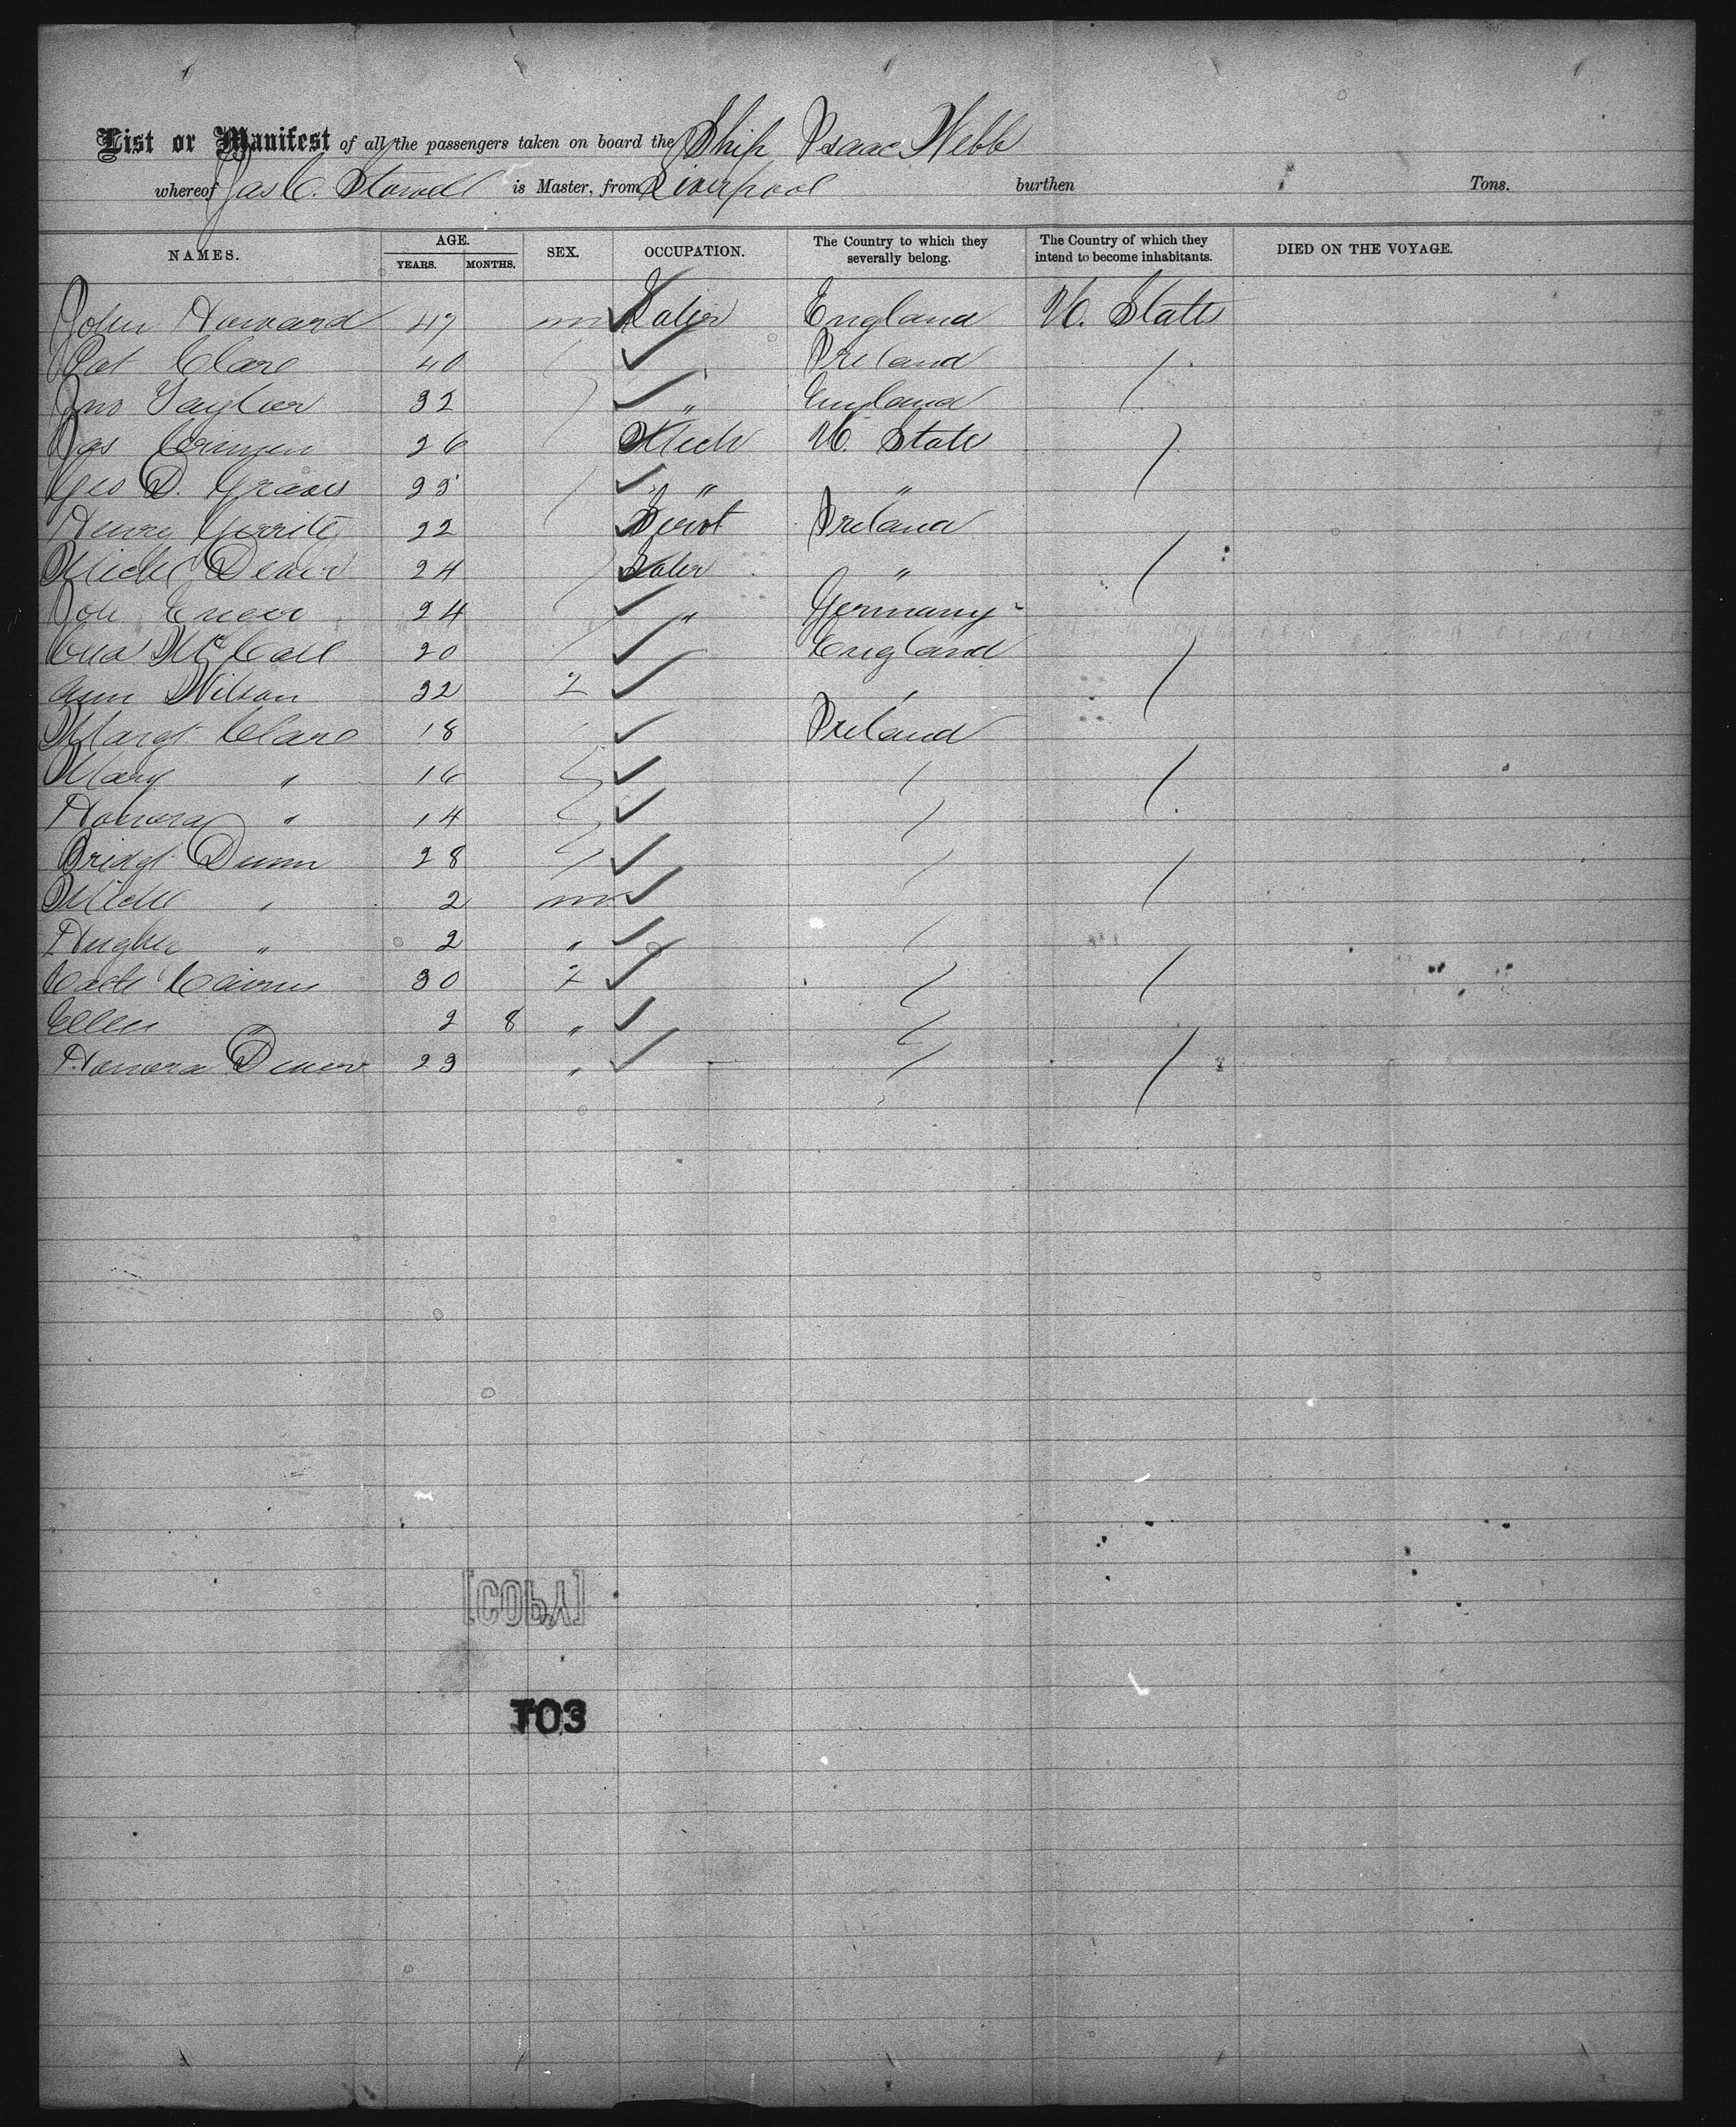 List or Manifest of all the passengers taken on board the Ship Isaac Webb
whereof Jas C. Stowell is Master, from Liverpool burthen Tons.
NAMES. AGE. YEARS. MONTHS. SEX. OCCUPATION. The Country to which they severally belong. The Country of which they intend to become inhabitants. DIED ON THE VOYAGE.
John Howard 47 m England U. States
Pat Clare 40 Ireland
Jno Taylor 32 " England
Jas 26 Mech U. State
Geo D. Graves 25 " "
Henry 22 Servt Ireland
Michl Dever 24 "
24 " Germany
McCall 20 England
Ann Wilson 32 f
Margt Clare 18 Ireland
Mary " 16
Honora " 14
Bridgt Dunn 28
Michl " 2 m
Hughey " 2 "
Cath Cairns 30 f
Ellen " 2 8 "
Honora Dever 23 "
[COPY]
103